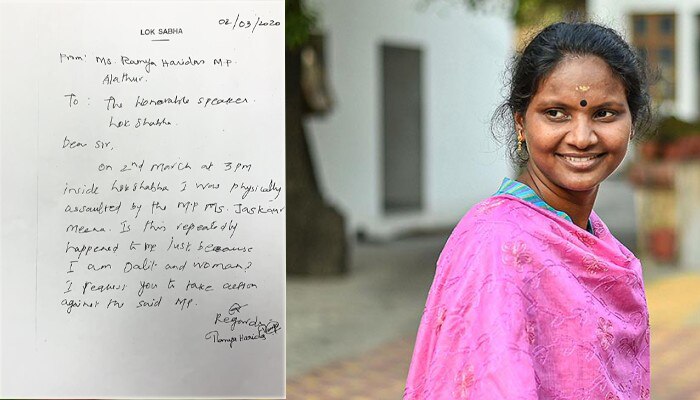 LOK SABHA
02/03/2020
From: Ms. Ramya Haridas MP.
Alathur.
To: The Honorable speaker.
Lok Shabha.
Dear Sir,
On 2nd March at 3pm
inside lokshabha I was physically
assaulted by the MP Ms. Jaskaur
Meena. Is this repeatedly
happened to me just because
I am Dalit and woman?
I request you to take action
against the said MP.
Regards
Ramya Haridas